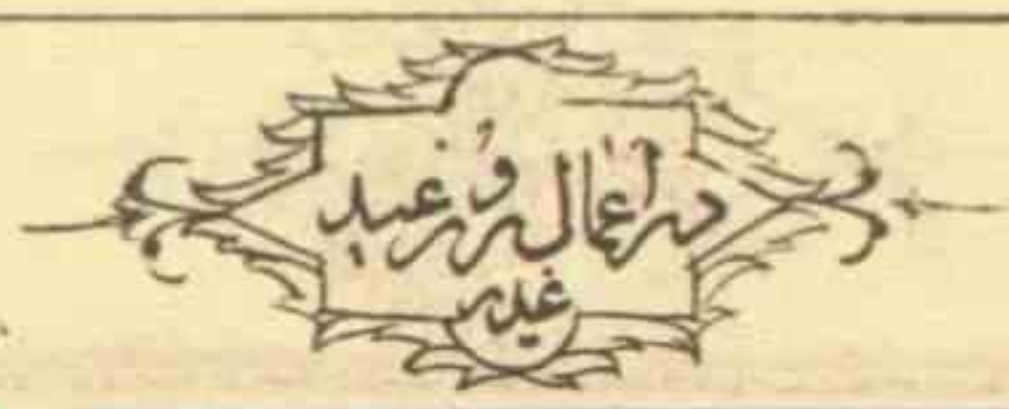 در اعمال روز عید
غدیر